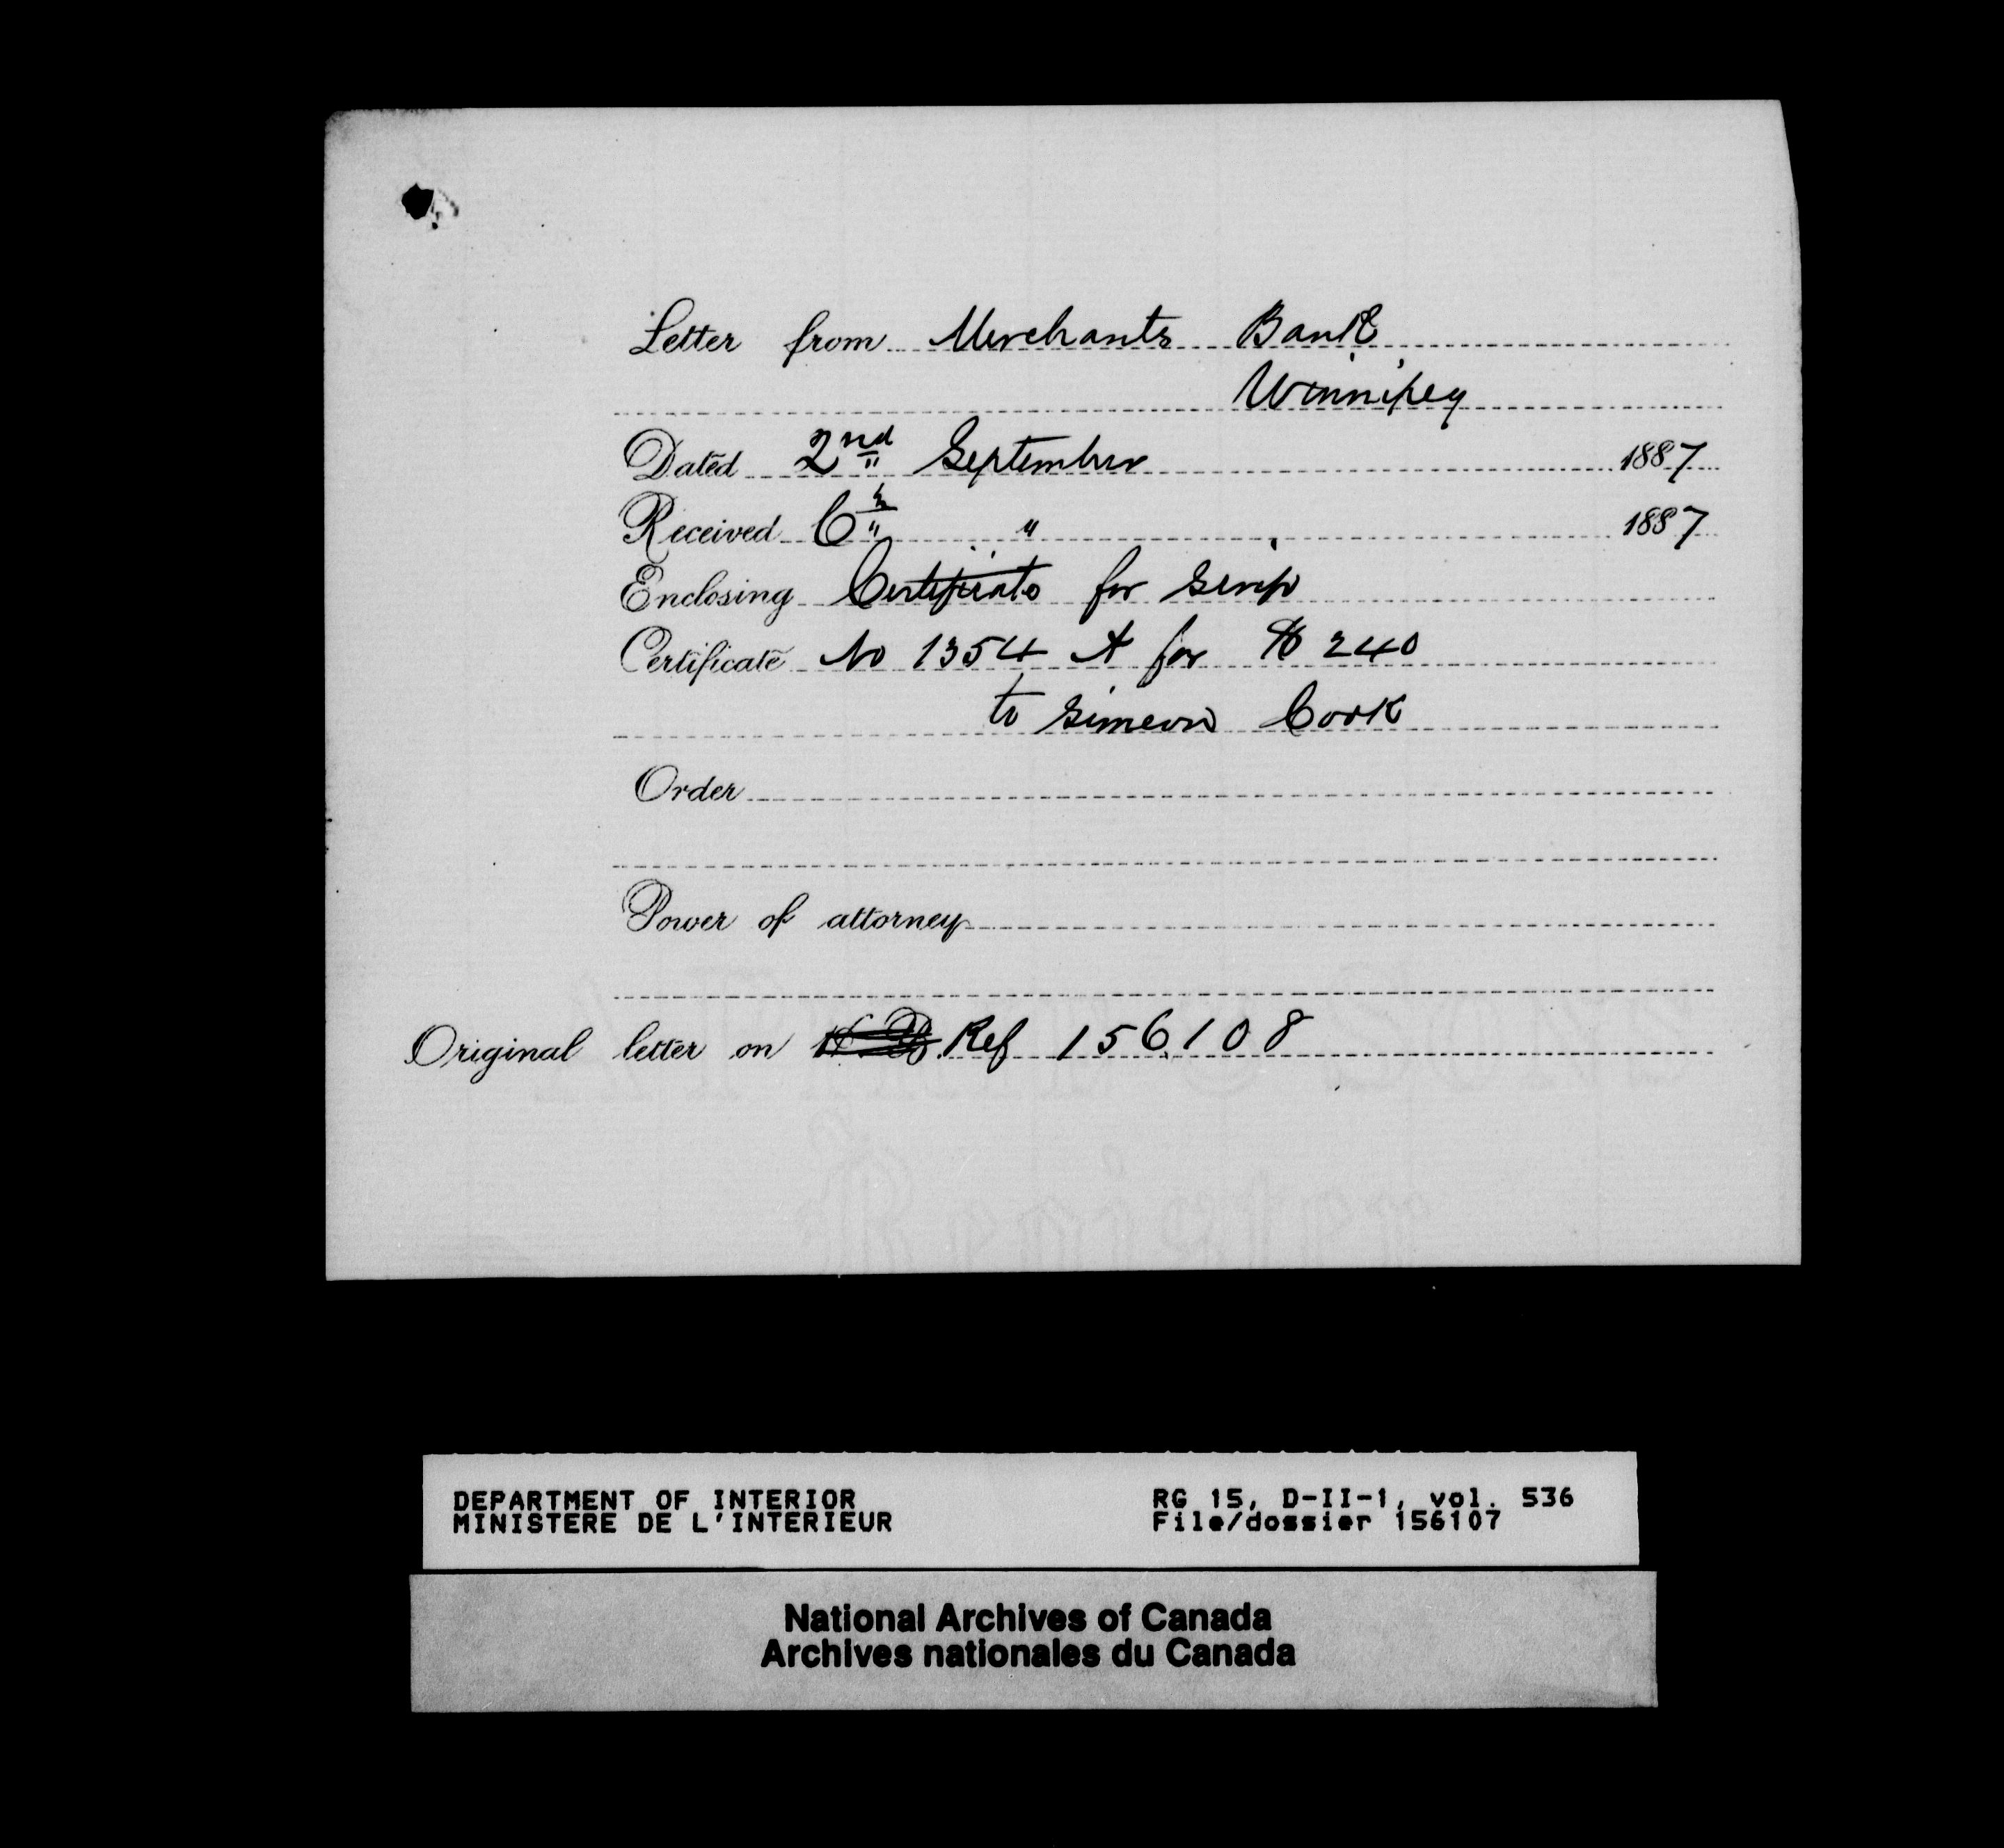 Letter from Merchants Bank
Winnipeg
Dated 2nd September 1887
Received 6th " 1887
Enclosing Certificate for Scrip
Certificate No 1354 A for $ 240
to Simeon Cook
Order
Power of attorney
Original letter on Ref 156108
DEPARTMENT OF INTERIOR RG 15, D-II-1, vol. 536
MINISTERE DE L'INTERIEUR File/dossier 156107
National Archives of Canada
Archives nationales du Canada